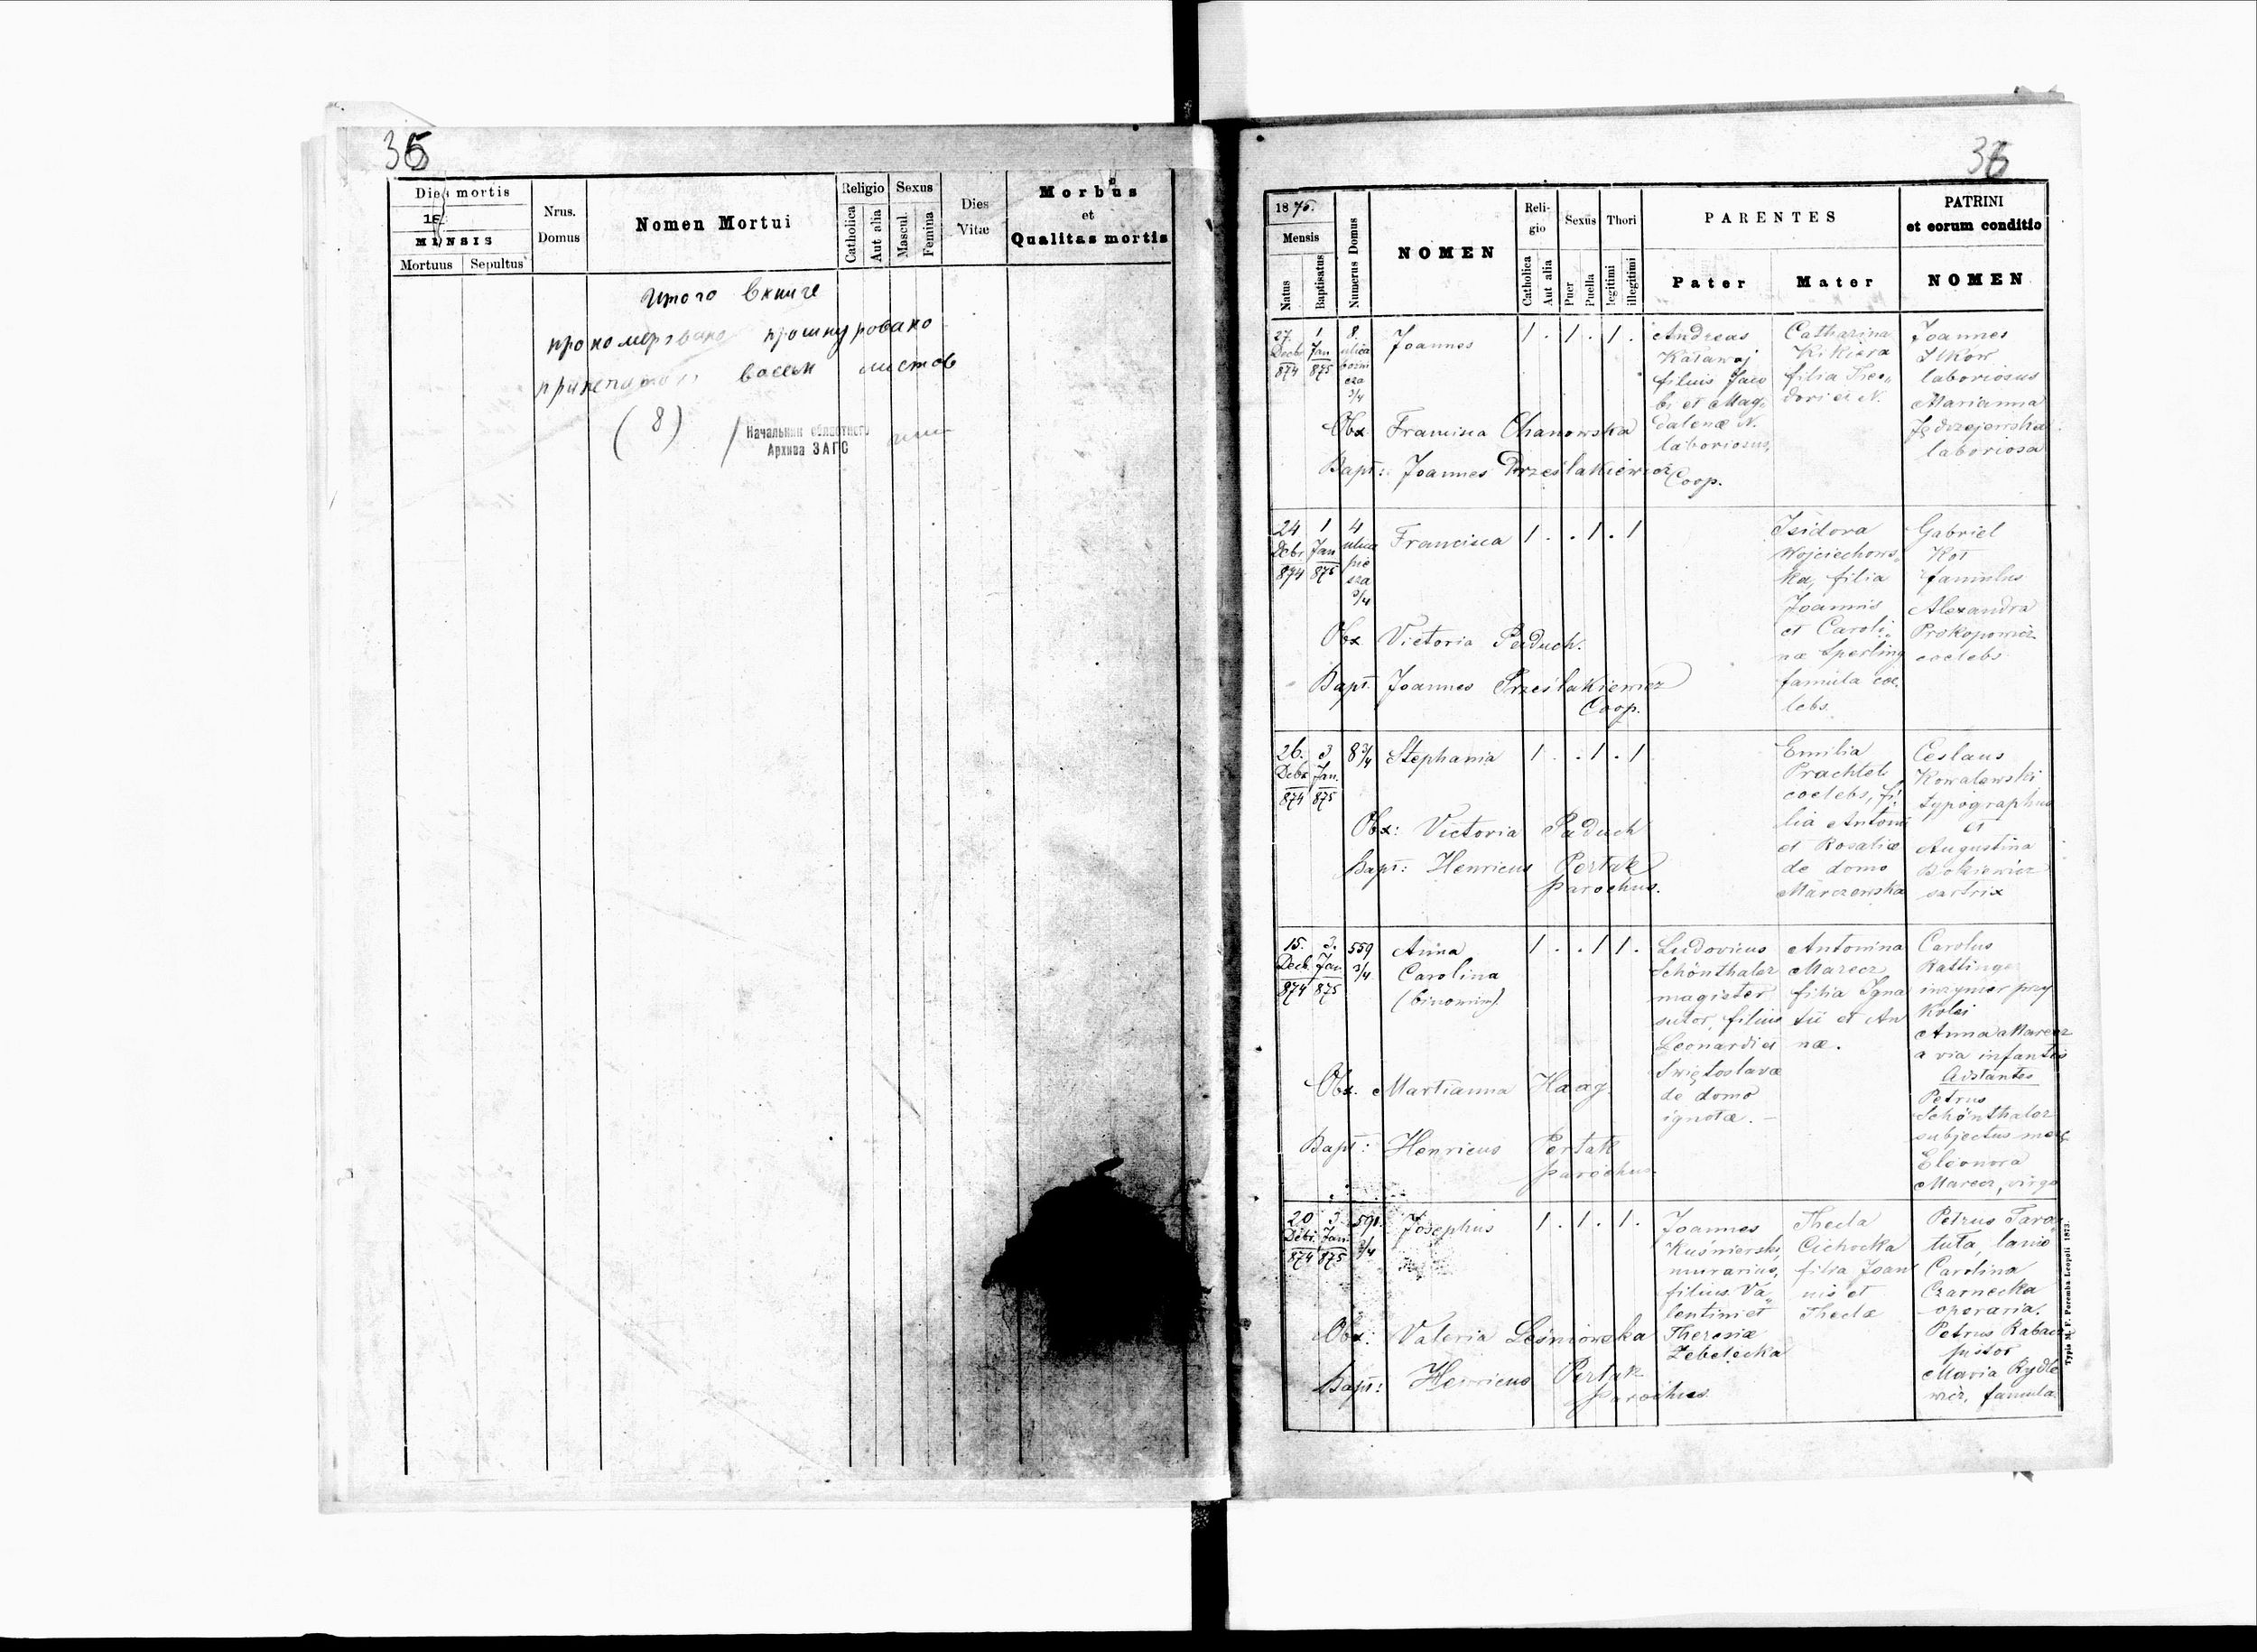 36
Dies mortis
18
MENSIS
Mortuus Sepultus
Nrus. Domus
Nomen Mortui
Religio
Catholica
Aut alia
Sexus
Mascul.
Femina
Dies Vitæ
Morbus
et
Qualitas mortis
Итого в книге
прономеровано прошнуровано
восем листов
(8)
Начальник областного
Архива ЗАГС
36
1875.
Mensis
Natus
Baptisatus
Numerus Domus
NOMEN
Reli-
gio
Catholica
Aut alia
Sexus
Puer
Puella
Thori
legitimi
illegitimi
PARENTES
Pater
Mater
PATRINI
et eorum conditio
NOMEN
27. Decb. 874
1 Jan 875
8. ulica 3/4
Joannes
1 . 1 . 1 .
Andreas
Karawaj
filius Jaco
bi et Mag„
dalenæ N.
laboriosus,
Catharina
Kikiera
filia Theo„
dori et N.
Joannes
Ilkow
laboriosus
Marianna
Jędrzejewska
laboriosa
Obx Francisca Chanowska
Bapt: Joannes Prześlakiewicz
Coop.
24 Debr 874
1 Jan 875
4 ulica pie sza 3/4
Francisca
1 . . 1 . 1
Isidora
Wojciechows„
ka, filia
Joannis
et Caroli„
næ Sperling
famula coe„
lebs.
Gabriel
Kot
famulus
Alexandra
Prokopowicz
coelebs
Obx Victoria Paduch.
Bapt. Joannes Prześlakiewicz
Coop.
26. Debr 874
3 Jan. 875
8 3/4
Stephania
1 . . 1 . 1
Emilia
Prachtel
coelebs, fi„
lia Antoni
et Rosaliæ
de domo
Marczewska
Ceslaus
Kowalewski
typographus
et
Augustina
sartrix
Obx: Victoria Paduch
Bapt: Henricus Pertak
parochus.
15. Decb. 874
3. Jan 875
559 3/4
Anna
Carolina
(binomini)
1 . . 1 1 .
Ludovicus
Schönthaler
magister
sutor, filius
Leonardi et
Świętoslavæ
de domo
ignotæ. –
Antonina
Marecz
filia Igna
tii et An
næ.
Carolus
Rattinger
inzynier przy
Kolei
Anna Marecz
a via infantis
Adstantes
Petrus
Schönthaler
Eleonora
Marecz, virgo
Obx. Martianna Haag.
Bapt: Henricus Pertak
parochus.
20 Debr. 874
3. Jan. 875
591. 3/4
Josephus
1 . 1 . 1 .
Joannes
Kuśnierski,
murarius,
filius Va„
lentini et
Theresiæ
Zebelecka
Thecla
Cichocka
filia Joan
nis et
Theclæ
Petrus Tara„
tuta, lanio
Carolina
Czarnecka
operaria.
Petrus Rabacz
pistor
Maria Rydle
wicz, famula.
Obx: Valeria Leśniowska
Bapt: Henricus Pertak
parochus
Typis M. F. Poremba Leopoli 1873.